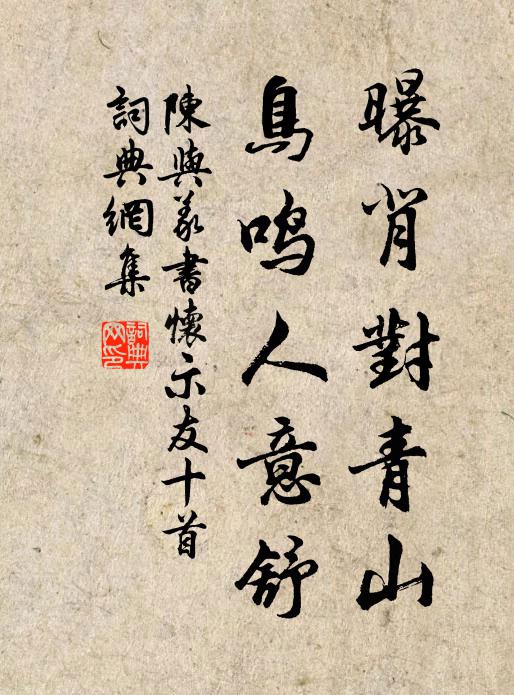 曝背對青山
鳥鳴人意舒
陳與義書懷示友十首
詞典網集
詞典
网印